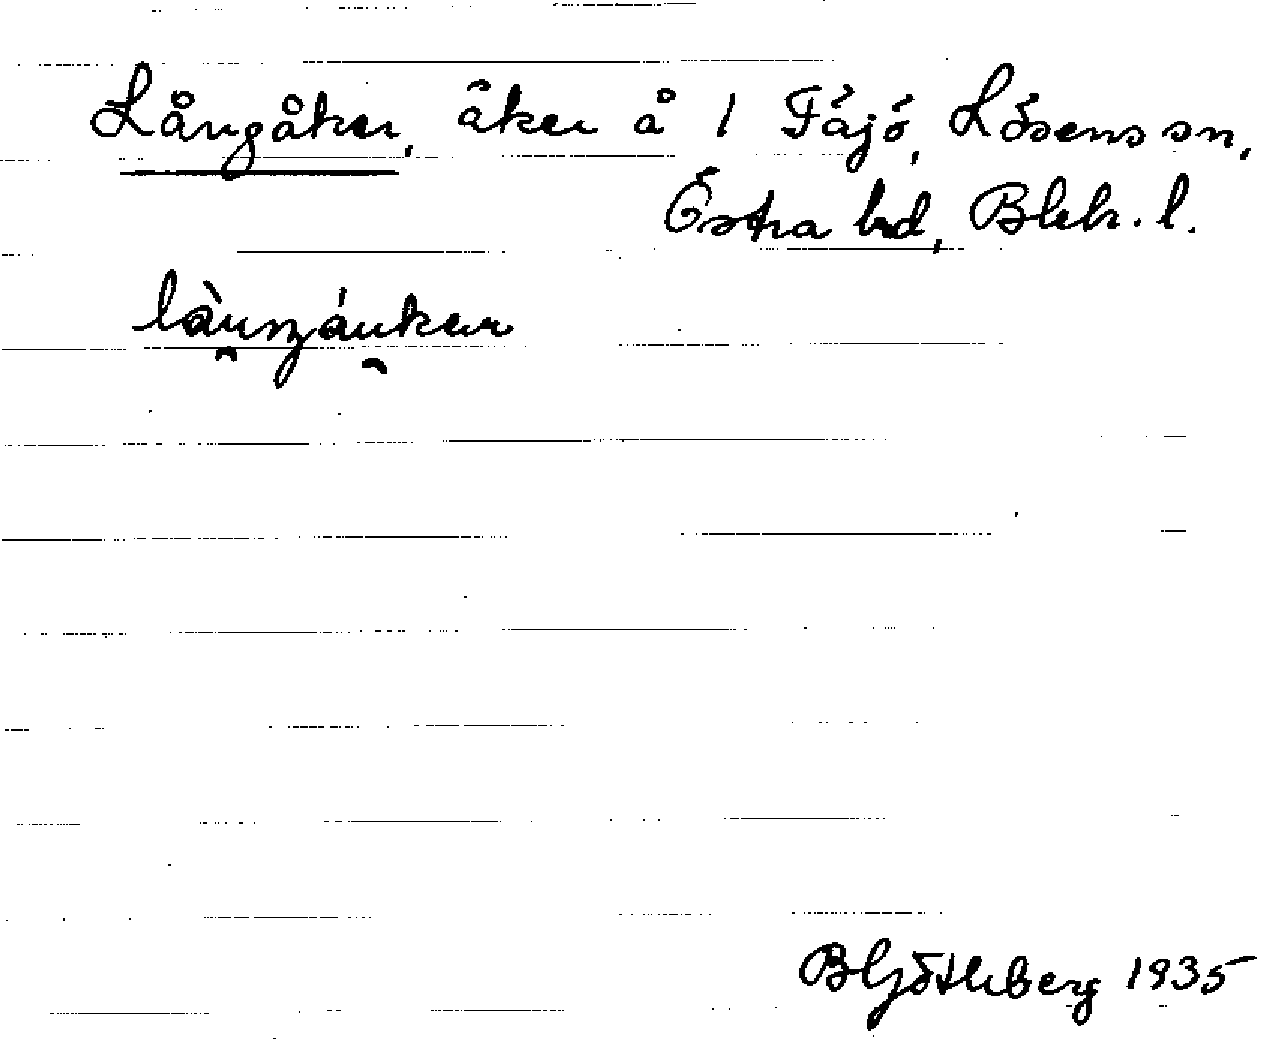 Långåker, åker å 1 Fäjö, Lösens sn,
Östra hd, Blek. l.
làu̯ŋáu̯kar
B Götleberg 1935